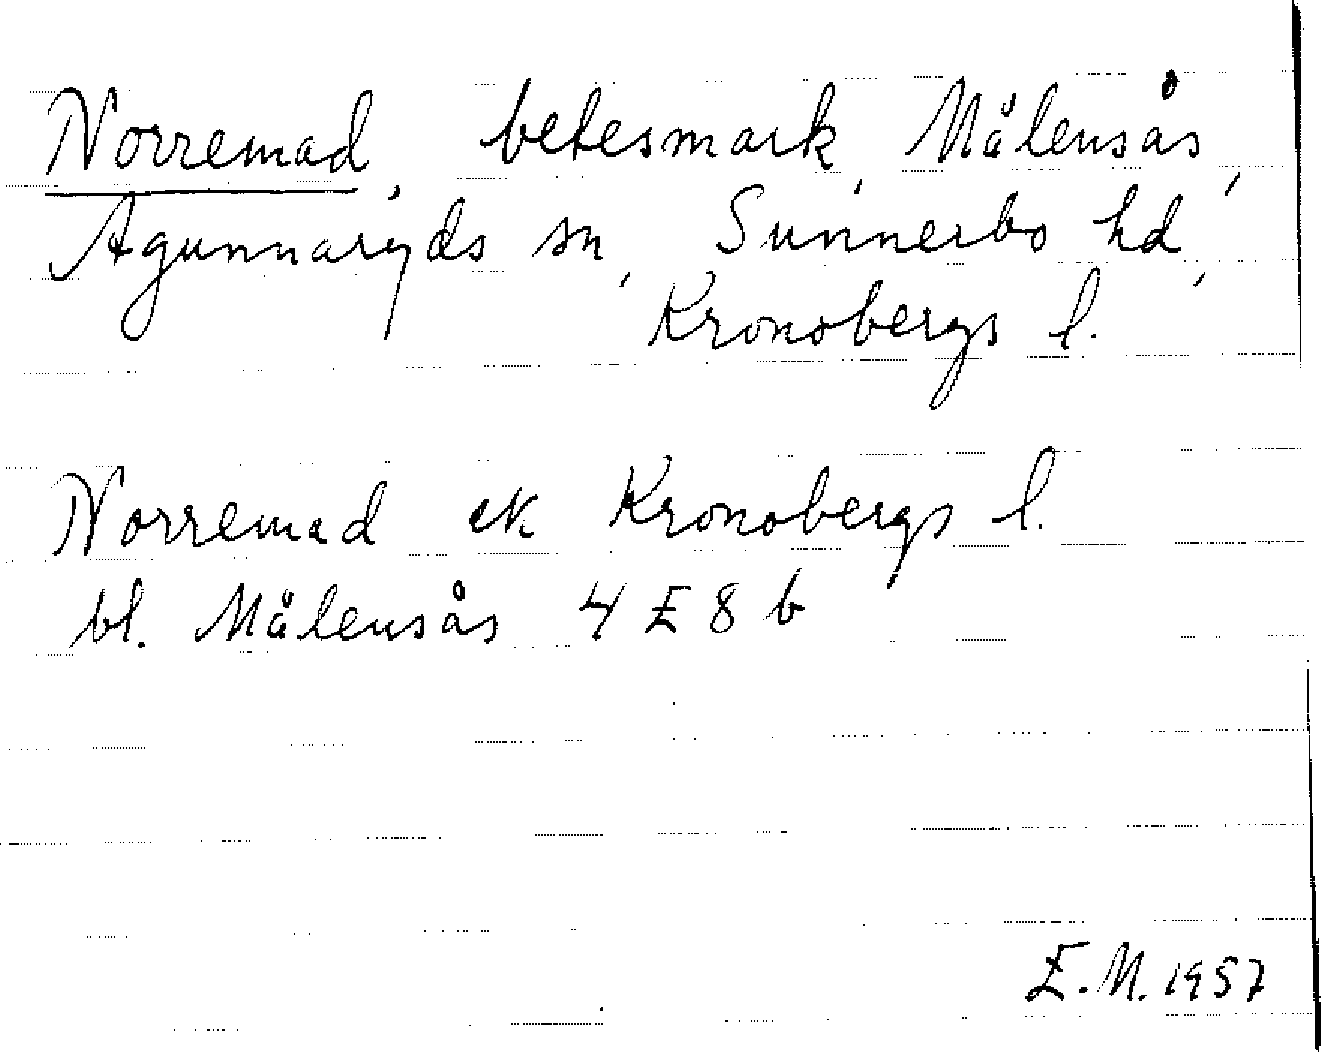 Norremad, betesmark, Målensås,
Agunnaryds sn, Sunnerbo hd,
Kronobergs l.
Norremad ek Kronobergs l.
bl. Målensås 4 E 8 b
E.M. 1957